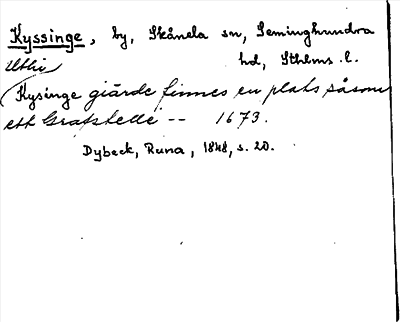 Kyssinge, by, Skånela sn, Seminghundra
hd, Sthlms l.
Uthi
Kysinge giärde finnes en plats såsom
ett Grafstelle -- 1673.
Dybeck, Runa, 1848, s. 20.